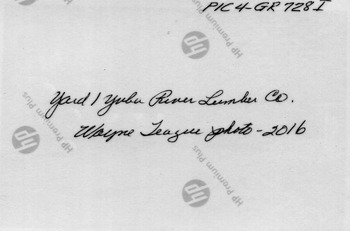 PIC 4-GR 728-I
Yard 1 Yuba River Lumber Co.
Wayne Teague photo - 2016
hp HP Premium Plus
hp HP Premium Plus
hp HP Premium Plus
hp HP Premium Plus